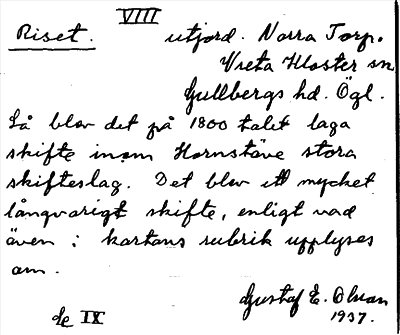 VIII
Riset. utjord. Norra Torp.
Vreta Kloster sn
Gullbergs hd. Ögl.
Så blev det på 1800 talet laga
skifte inom Hornstäve stora
skifteslag. Det blev ett mycket
långvarigt skifte, enligt vad
även i kartans rubrik upplyses
om.
Gustaf E. Olson
de IX 1937.